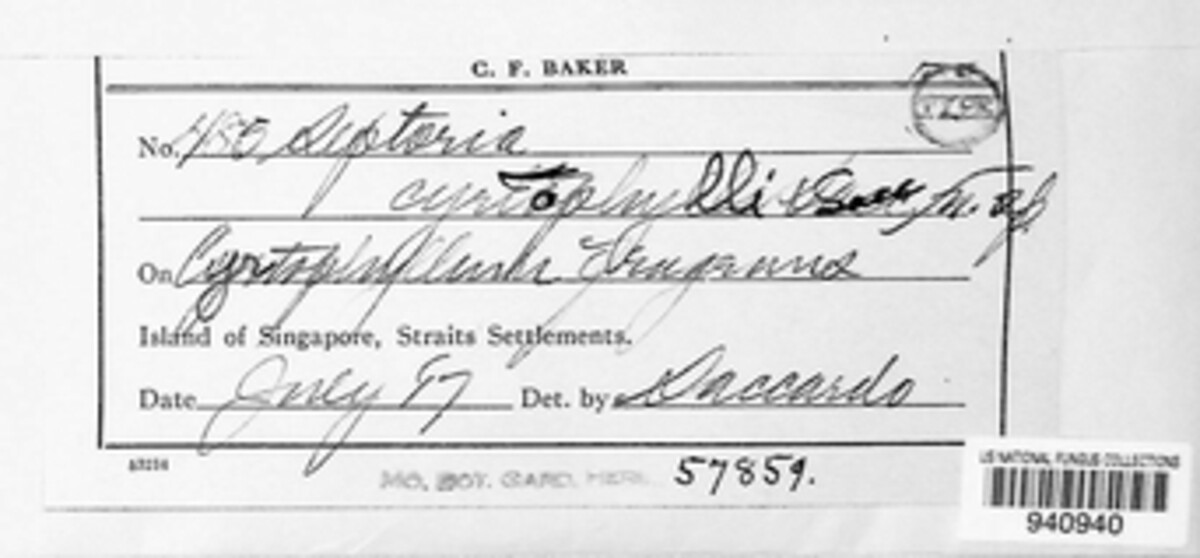 C. F. BAKER
No. 480 Septoria
cyrtophylli Sacc. n. sp.
On Cyrtophyllum fragrans
Island of Singapore, Straits Settlements.
Date July 17 Det. by Saccardo
MO. BOT. GARD. HERB. 57859.
US NATIONAL FUNGUS COLLECTIONS
940940